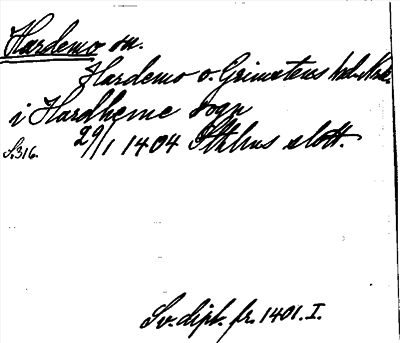 Hardemo sn.
Hardemo o. Grimstens hd. Nrk.
i Hardheme sogn
S.316. 29/1 1404 Sthlms slott.
Sv. dipl. fr. 1401. I.